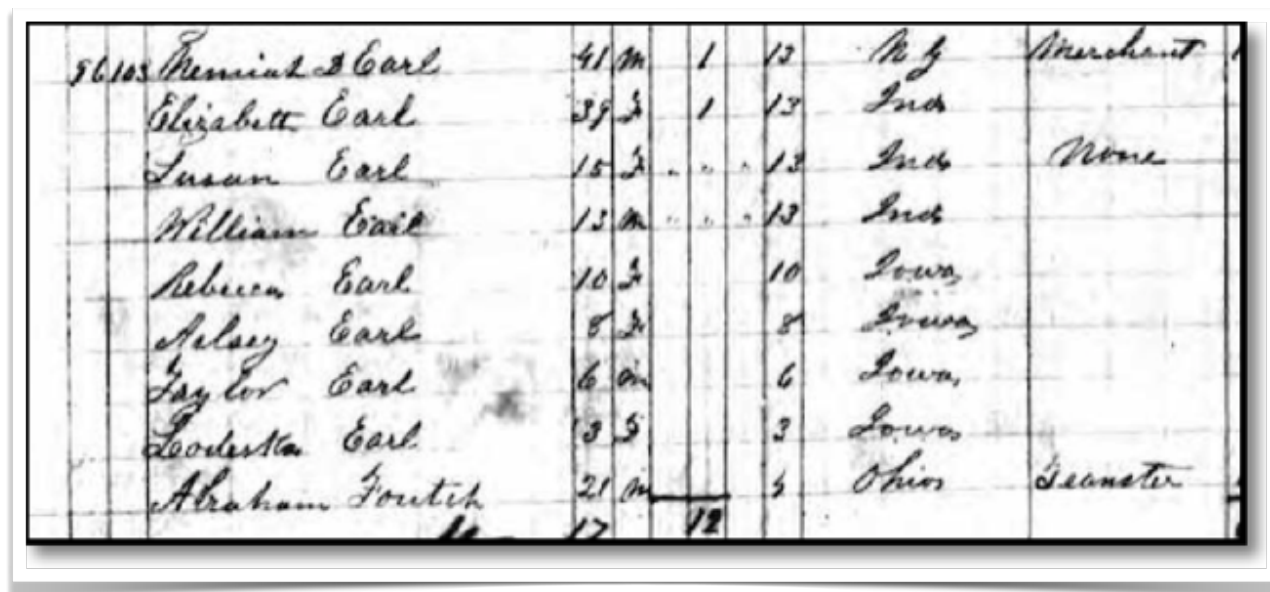 96 103 Nemiah D Earl 41 m 1 13 N Y Merchant
Elizabett Earl 39 F 1 13 Ind
Susan Earl 15 F " " " 13 Ind None
William Earl 13 m " " " 13 Ind
Rebecca Earl 10 F 10 Iowa
Aelsey Earl 8 F 8 Iowa
Taylor Earl 6 m 6 Iowa
Loderska Earl 3 F 3 Iowa
Abraham Foutch 21 m Ohio Teamster
17 12